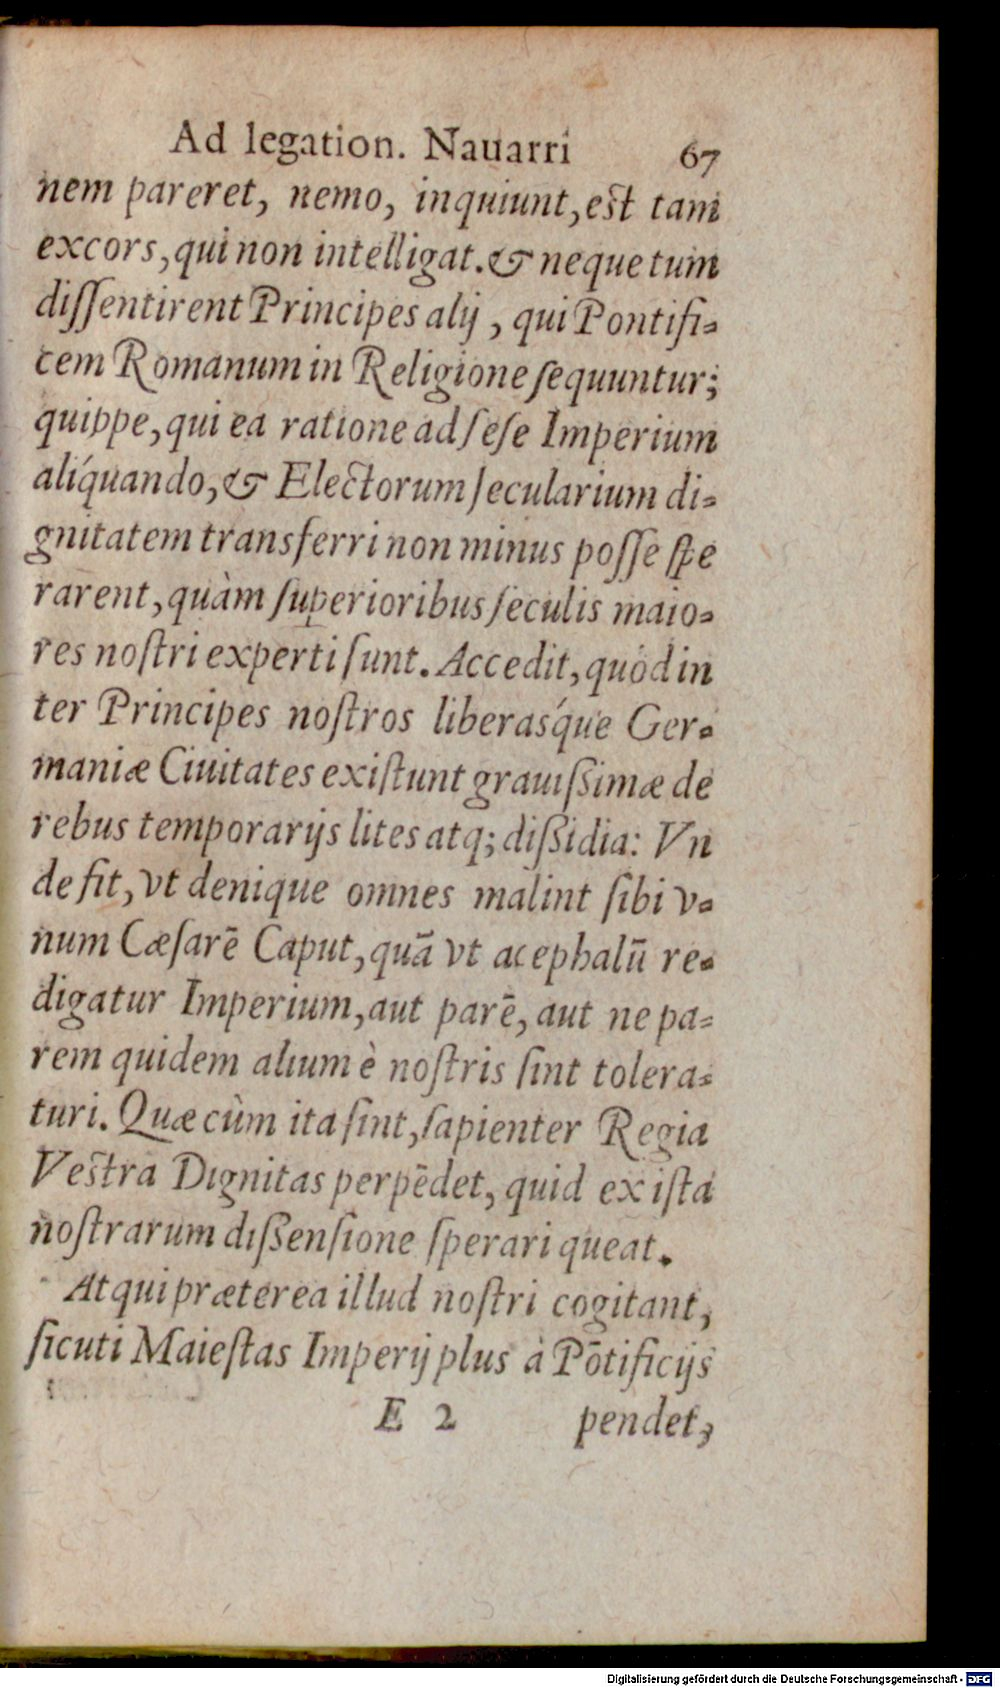 Ad legation. Nauarri 67
nem pareret, nemo, inquiunt, est tam
excors, qui non intelligat. & neque tum
diſſentirent Principes alij, qui Pontifi-
cem Romanum in Religione ſequuntur;
quippe, qui ea ratione ad ſeſe Imperium
alíquando, & Electorum ſecularium di-
gnitatem transferri non minus poſſe ſpe
rarent, quàm ſuperioribus ſeculis maio-
res noſtri experti ſunt. Accedit, quòd in
ter Principes noſtros liberasq́ue Ger-
maniæ Ciuitates exiſtunt grauiſsimæ de
rebus temporarijs lites atq; diſsidia: Vn
de fit, vt denique omnes malint ſibi v-
num Cæſarē Caput, quā vt acephalū re-
digatur Imperium, aut parē, aut ne pa-
rem quidem alium è noſtris ſint tolera-
turi. Quæ cùm ita ſint, ſapienter Regia
Vestra Dignitas perpēdet, quid ex iſta
noſtrarum diſsenſione ſperari queat.
Atqui præterea illud noſtri cogitant,
ſicuti Maieſtas Imperij plus à Pōtificijs
E 2 pendet,
Digitalisierung gefördert durch die Deutsche Forschungsgemeinschaft - DFG